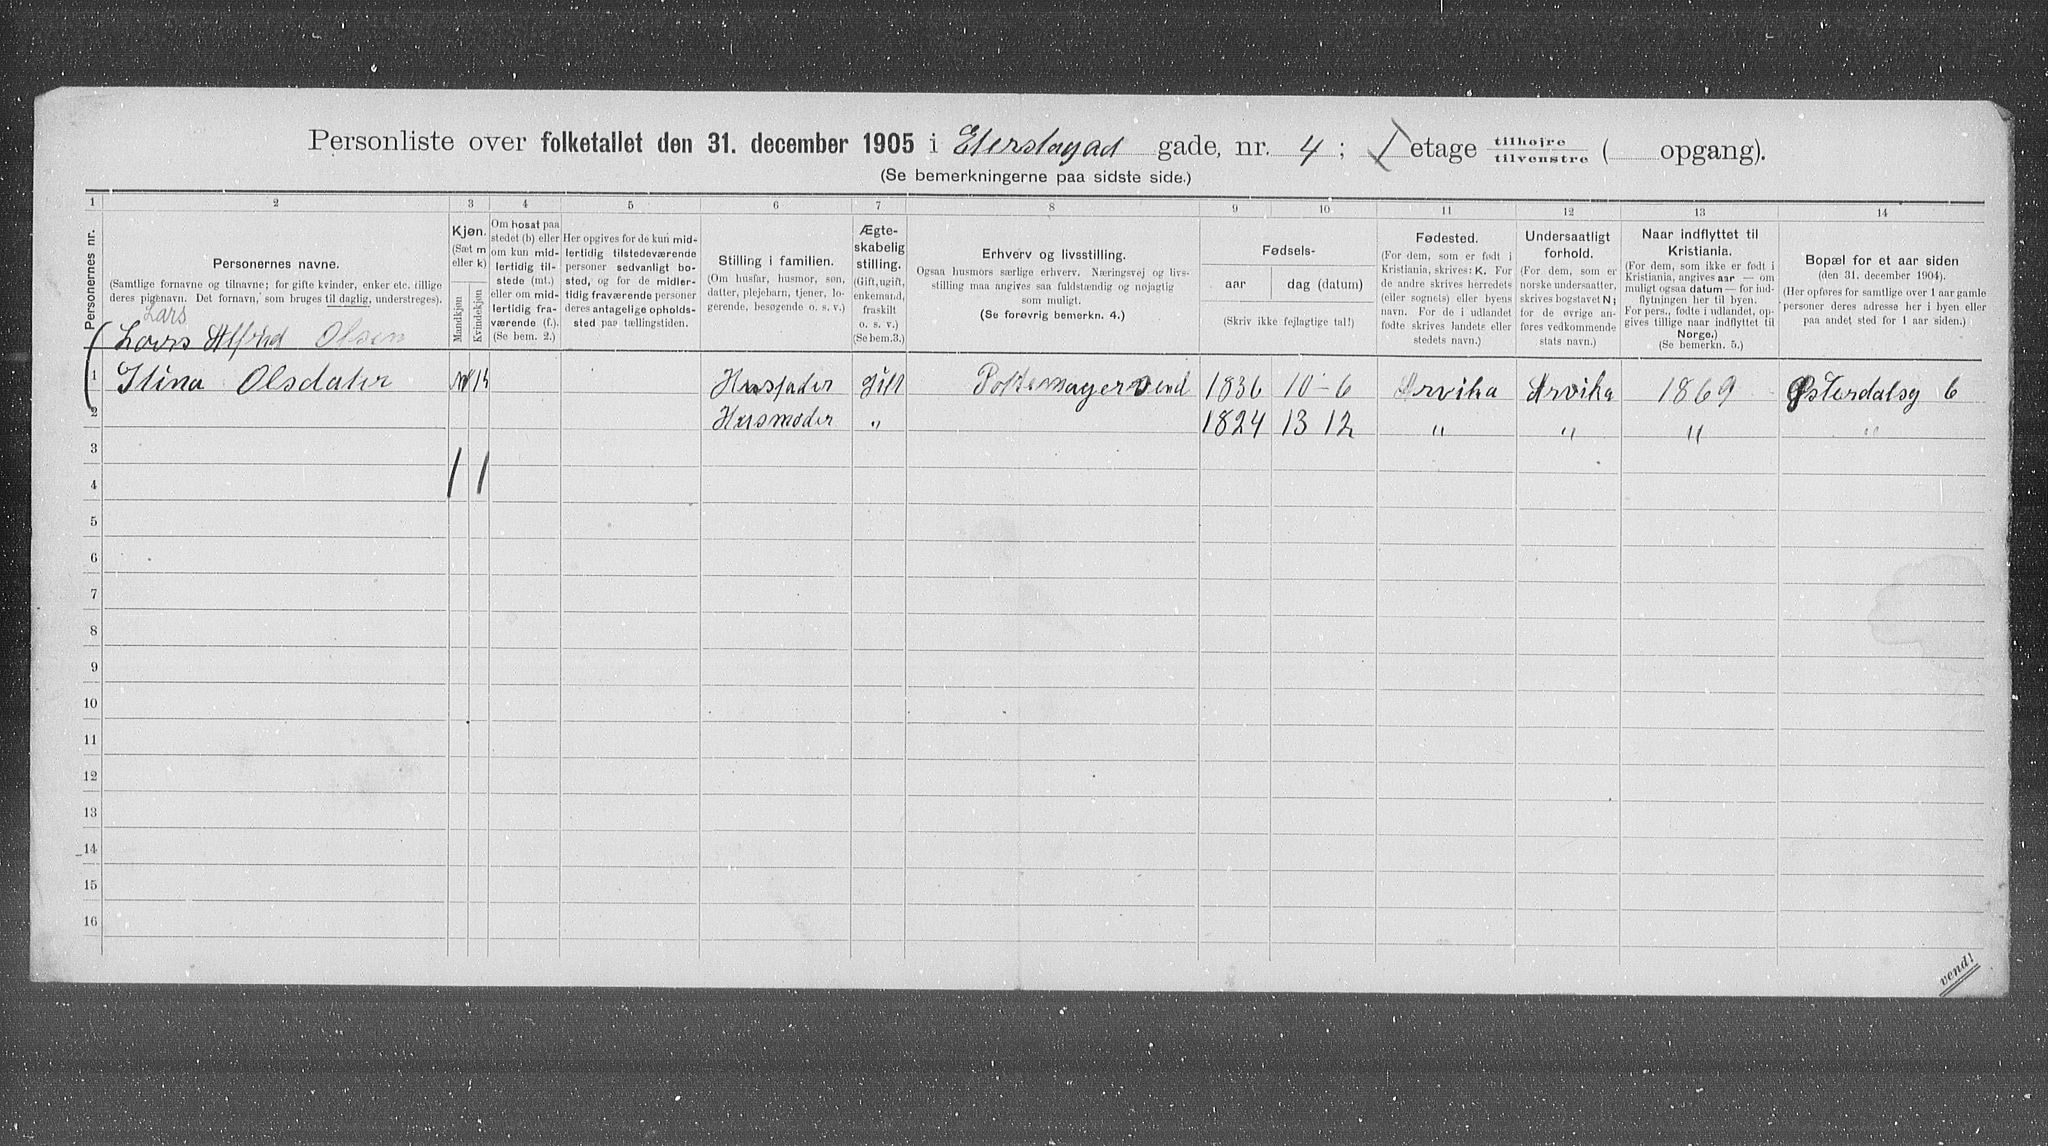 Personliste over folketallet den 31. december 1905 i Eterstagad gade, nr. 4; I etage tilhøjre tilvenstre ( opgang).
(Se bemerkningerne paa sidste side.)
1 2 3 4 5 6 7 8 9 10 11 12 13 14
Personernes nr.
Personernes navne.
(Samtlige fornavne og tilnavne; for gifte kvinder, enker etc. tillige
deres pigenavn. Det fornavn, som bruges til daglig, understreges).
Kjøn.
(Sæt m
eller k)
Mandkjøn
Kvindekjøn
Om bosat paa
stedet (b) eller
om kun mid-
lertidig til-
stede (mt.)
eller om mid-
lertidig fra-
værende (f.).
(Se bem. 2.)
Her opgives for de kun mid-
lertidig tilstedeværende
personer sedvanligt bo-
sted, og for de midler-
tidig fraværende personer
deres antagelige opholds-
sted paa tællingstiden.
Stilling i familien.
(Om husfar, husmor, søn,
datter, plejebarn, tjener, lo-
gerende, besøgende o. s. v.)
Ægte-
skabelig
stilling.
(Gift, ugift,
enkemand,
fraskilt
o. s. v.)
(Se bem.3.)
Erhverv og livsstilling.
Ogsaa husmors særlige erhverv. Næringsvej og livs-
stilling maa angives saa fuldstændig og nøjagtig
som muligt.
(Se forøvrig bemerkn. 4.)
Fødsels-
aar
dag (datum)
(Skriv ikke fejlagtige tal!)
Fødested.
(For dem, som er født i
Kristiania, skrives: K. For
de andre skrives herredets
(eller sognets) eller byens
navn. For de i udlandet
fødte skrives landets eller
stedets navn.)
Undersaatligt
forhold.
(For dem, som er
norske undersaatter,
skrives bogstavet N;
for de øvrige an-
føres vedkommende
stats navn.)
Naar indflyttet til
Kristiania.
(For dem, som ikke er født i
Kristiania, angives aar — om
muligt ogsaa datum — for ind-
flytningen her til byen.
For pers., fødte i udlandet, op-
gives tillige naar indflyttet til
Norge.)
(Se bemerkn. 5.)
Bopæl for et aar siden
(den 31. december 1904).
(Her opføres for samtlige over 1 aar gamle
personer deres adresse her i byen eller
paa andet sted for 1 aar siden.)
Lars
Alfrid Olsen
1 Stina Olsdater Husfader gift 1836 10-6 Arvika Arvika 1869 Østerdalsg 6
2 Husmoder " 1824 13 12 " " " "
3
1 1
4
5
6
7
8
9
10
11
12
13
14
15
16
vend!